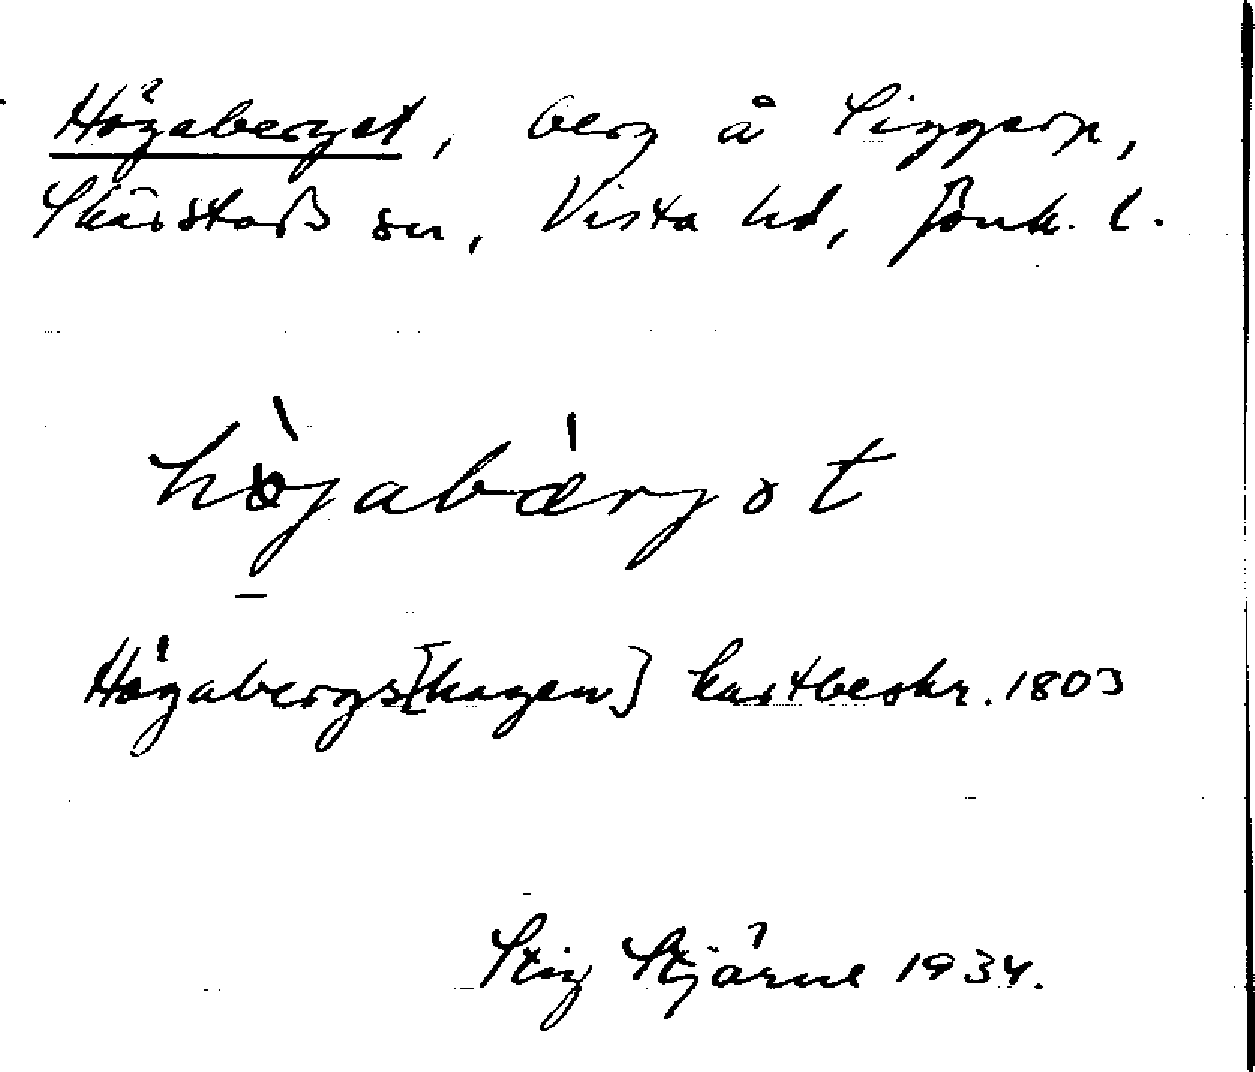 Högaberget, berg å Siggarp,
Skärstads sn, Vista hd, Jönk. l.
hö̀jabǽrjət
Högabergs[hagen] kartbeskr. 1803
Stig Stjärne 1934.